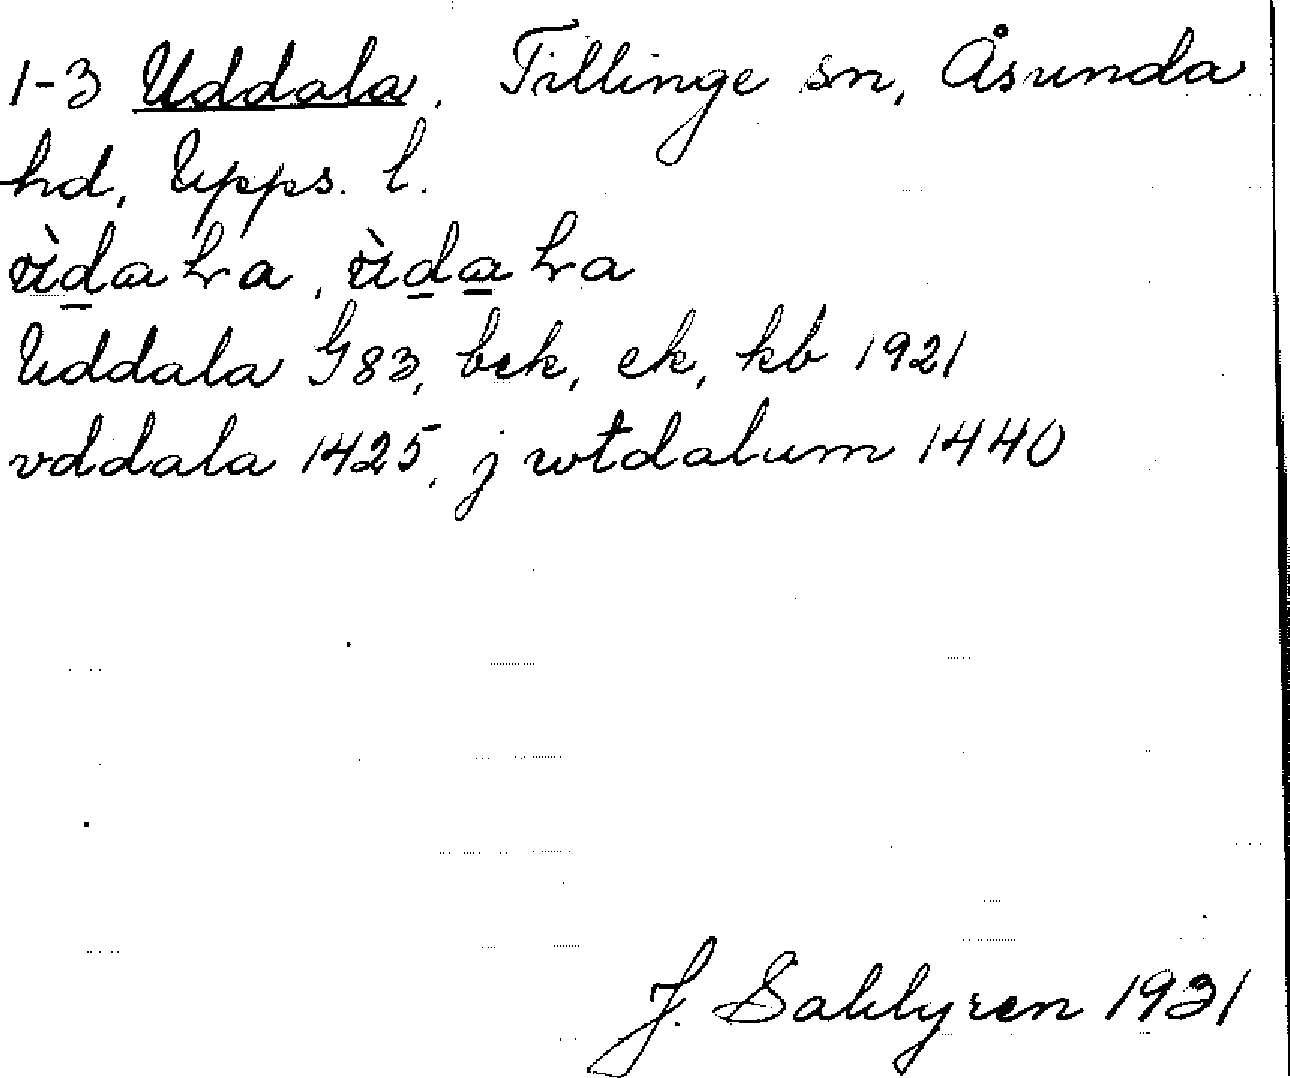 1-3 Uddala. Tillinge sn, Åsunda
hd, Upps. l.
Uddala G83, bek, ek, kb 1921
vddala 1425, j wtdalum 1440
J. Sahlgren 1931